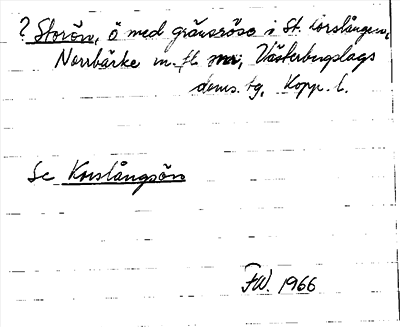 ? Storön, ö med gränsröse i St. Korslången,
Norrbärke m. fl snr, Västerbergslags
doms. tg, Kopp. l.
Se Korslångsön
FW. 1966